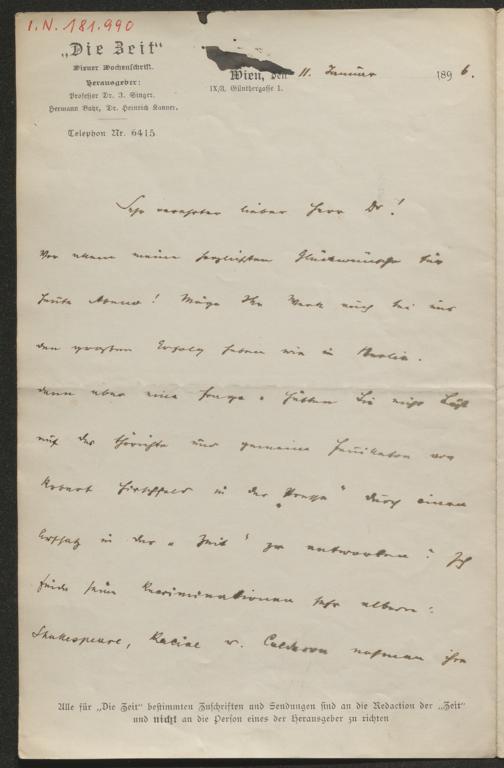 I.N. 181.990
„Die Zeit“
Wiener Wochenschrift.
Herausgeber:
Professor Dr. I. Singer,
Hermann Bahr, Dr. Heinrich Kanner.
Telephon Nr. 6415
Wien, den 11. Januar 1896.
IX/3, Günthergasse 1.
Sehr verehrter lieber Herr Dr!
Vor allem meine herzlichsten Glückwünsche für
heute Abend! Möge Ihr Werk auch bei uns
den großen Erfolg haben wie in Berlin.
Dann aber eine Frage: hätten Sie nicht Lust
auf das thörichte und gemeine Feuilleton von
Robert Hirschfeld in der „Presse“ durch einen
Aufsatz in der „Zeit“ zu antworten? Ich
finde seine Recriminationen sehr albern:
Shakespeare, Racine u. Calderon nahmen ihre
Alle für „Die Zeit“ bestimmten Zuschriften und Sendungen sind an die Redaction der „Zeit“
und nicht an die Person eines der Herausgeber zu richten